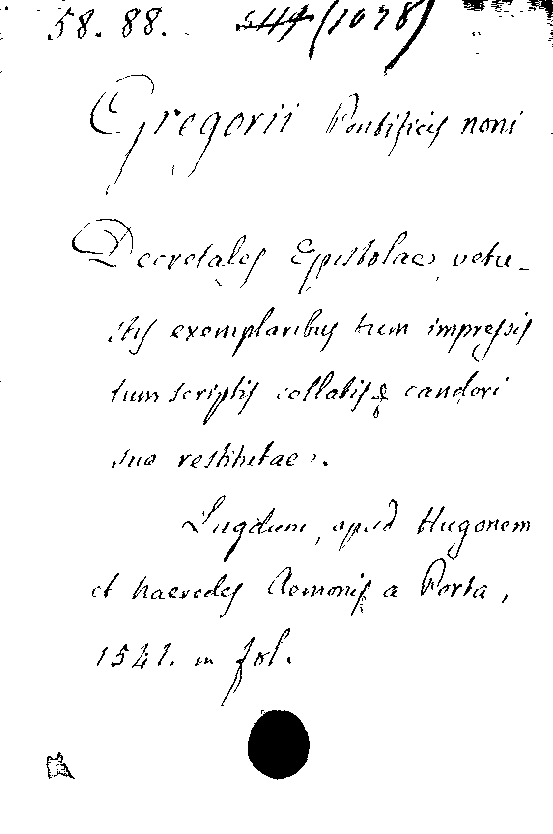 58. 88. 544 (1078)
Gregorii Pontificis noni
Decretales Epistolae, vetu-
stis exemplaribus tum impressis
tum scriptis collatis & candori
suo restitutae.
Lugduni, apud Hugonem
et haeredes Aemonis a Porta,
1541. in fol.